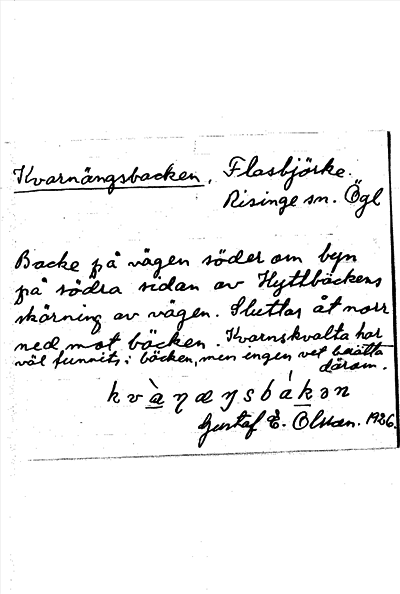 Kvarnängsbacken. Flasbjörke.
Risinge sn. Ögl
Backe på vägen söder om byn
på södra sidan av Hyttbäckens
skärning av vägen. Sluttar åt norr
ned mot bäcken. Kvarnskvalta har
väl funnits i bäcken, men ingen vet berätta
därom.
kvàɳæŋsbákən
Gustaf E. Olsson. 1926.